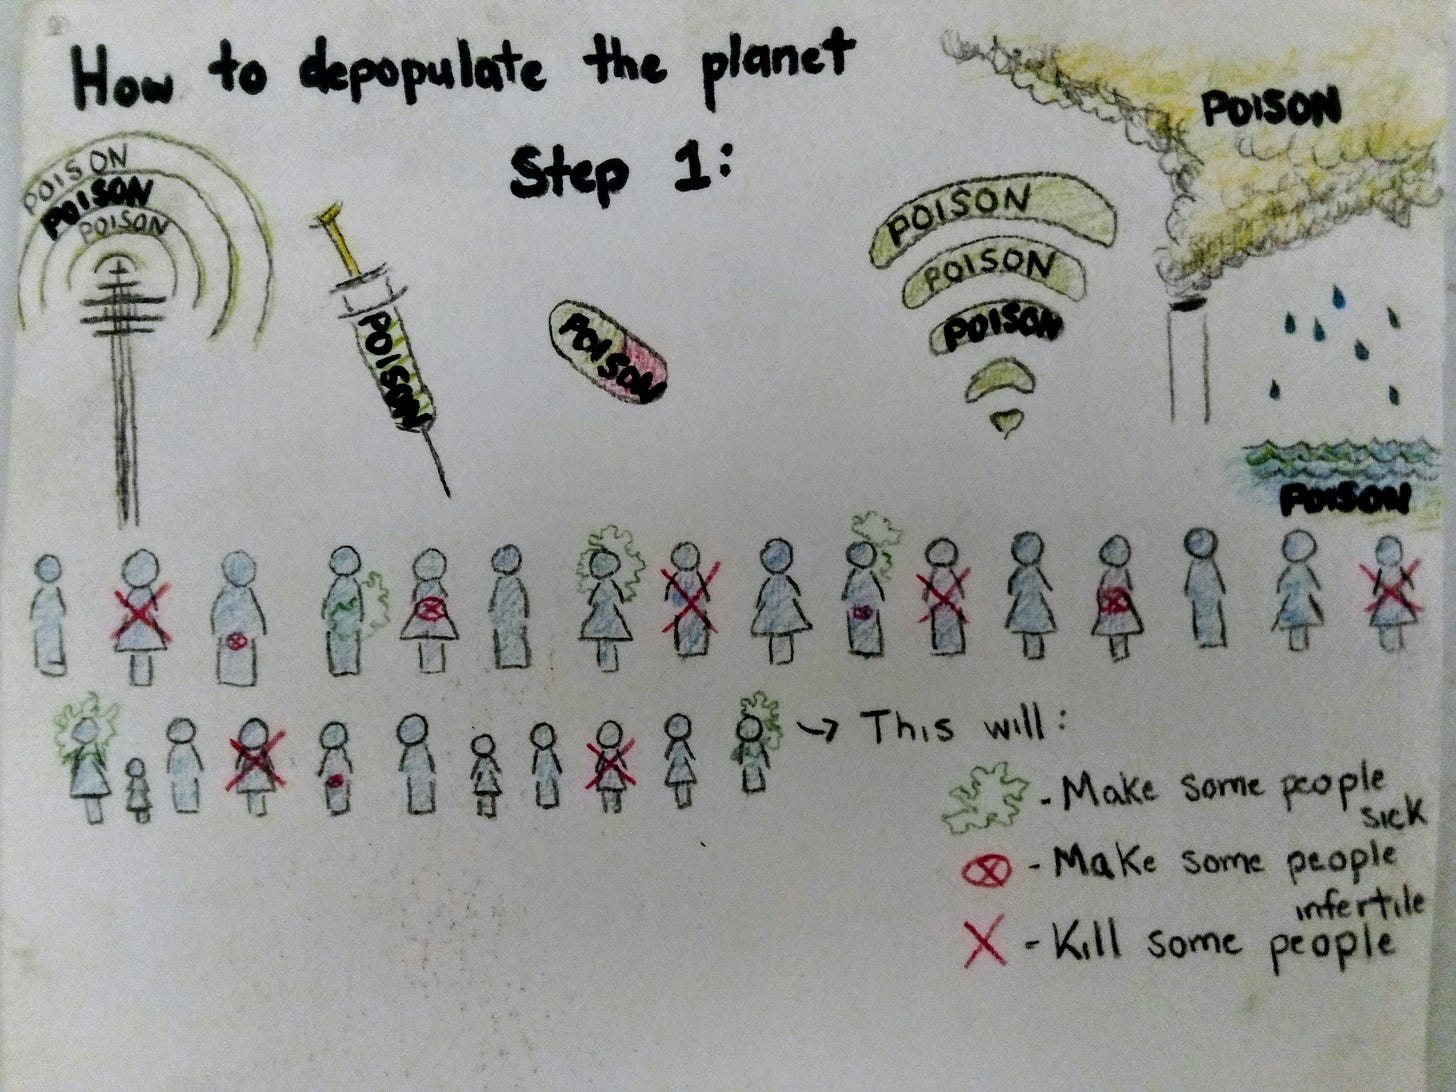 How to depopulate the planet
Step 1:
POISON
POISON
POISON
POISON
POISON
POISON
POISON
POISON
POISON
POISON
→ This will:
- Make some people
sick
- Make some people
infertile
X - Kill some people